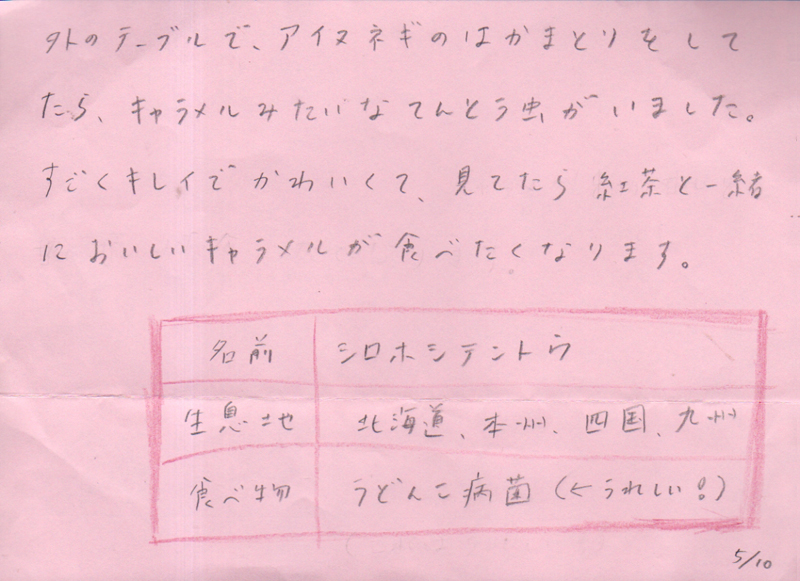 外のテーブルで、アイヌネギのはかまとりをして
たら、キャラメルみたいなてんとう虫がいました。
すごくキレイでかわいくて、見てたら紅茶と一緒
においしいキャラメルが食べたくなります。
名前 シロホシテントウ
生息地 北海道、本州、四国、九州
食べ物 うどんこ病菌(←うれしい!)
5/10